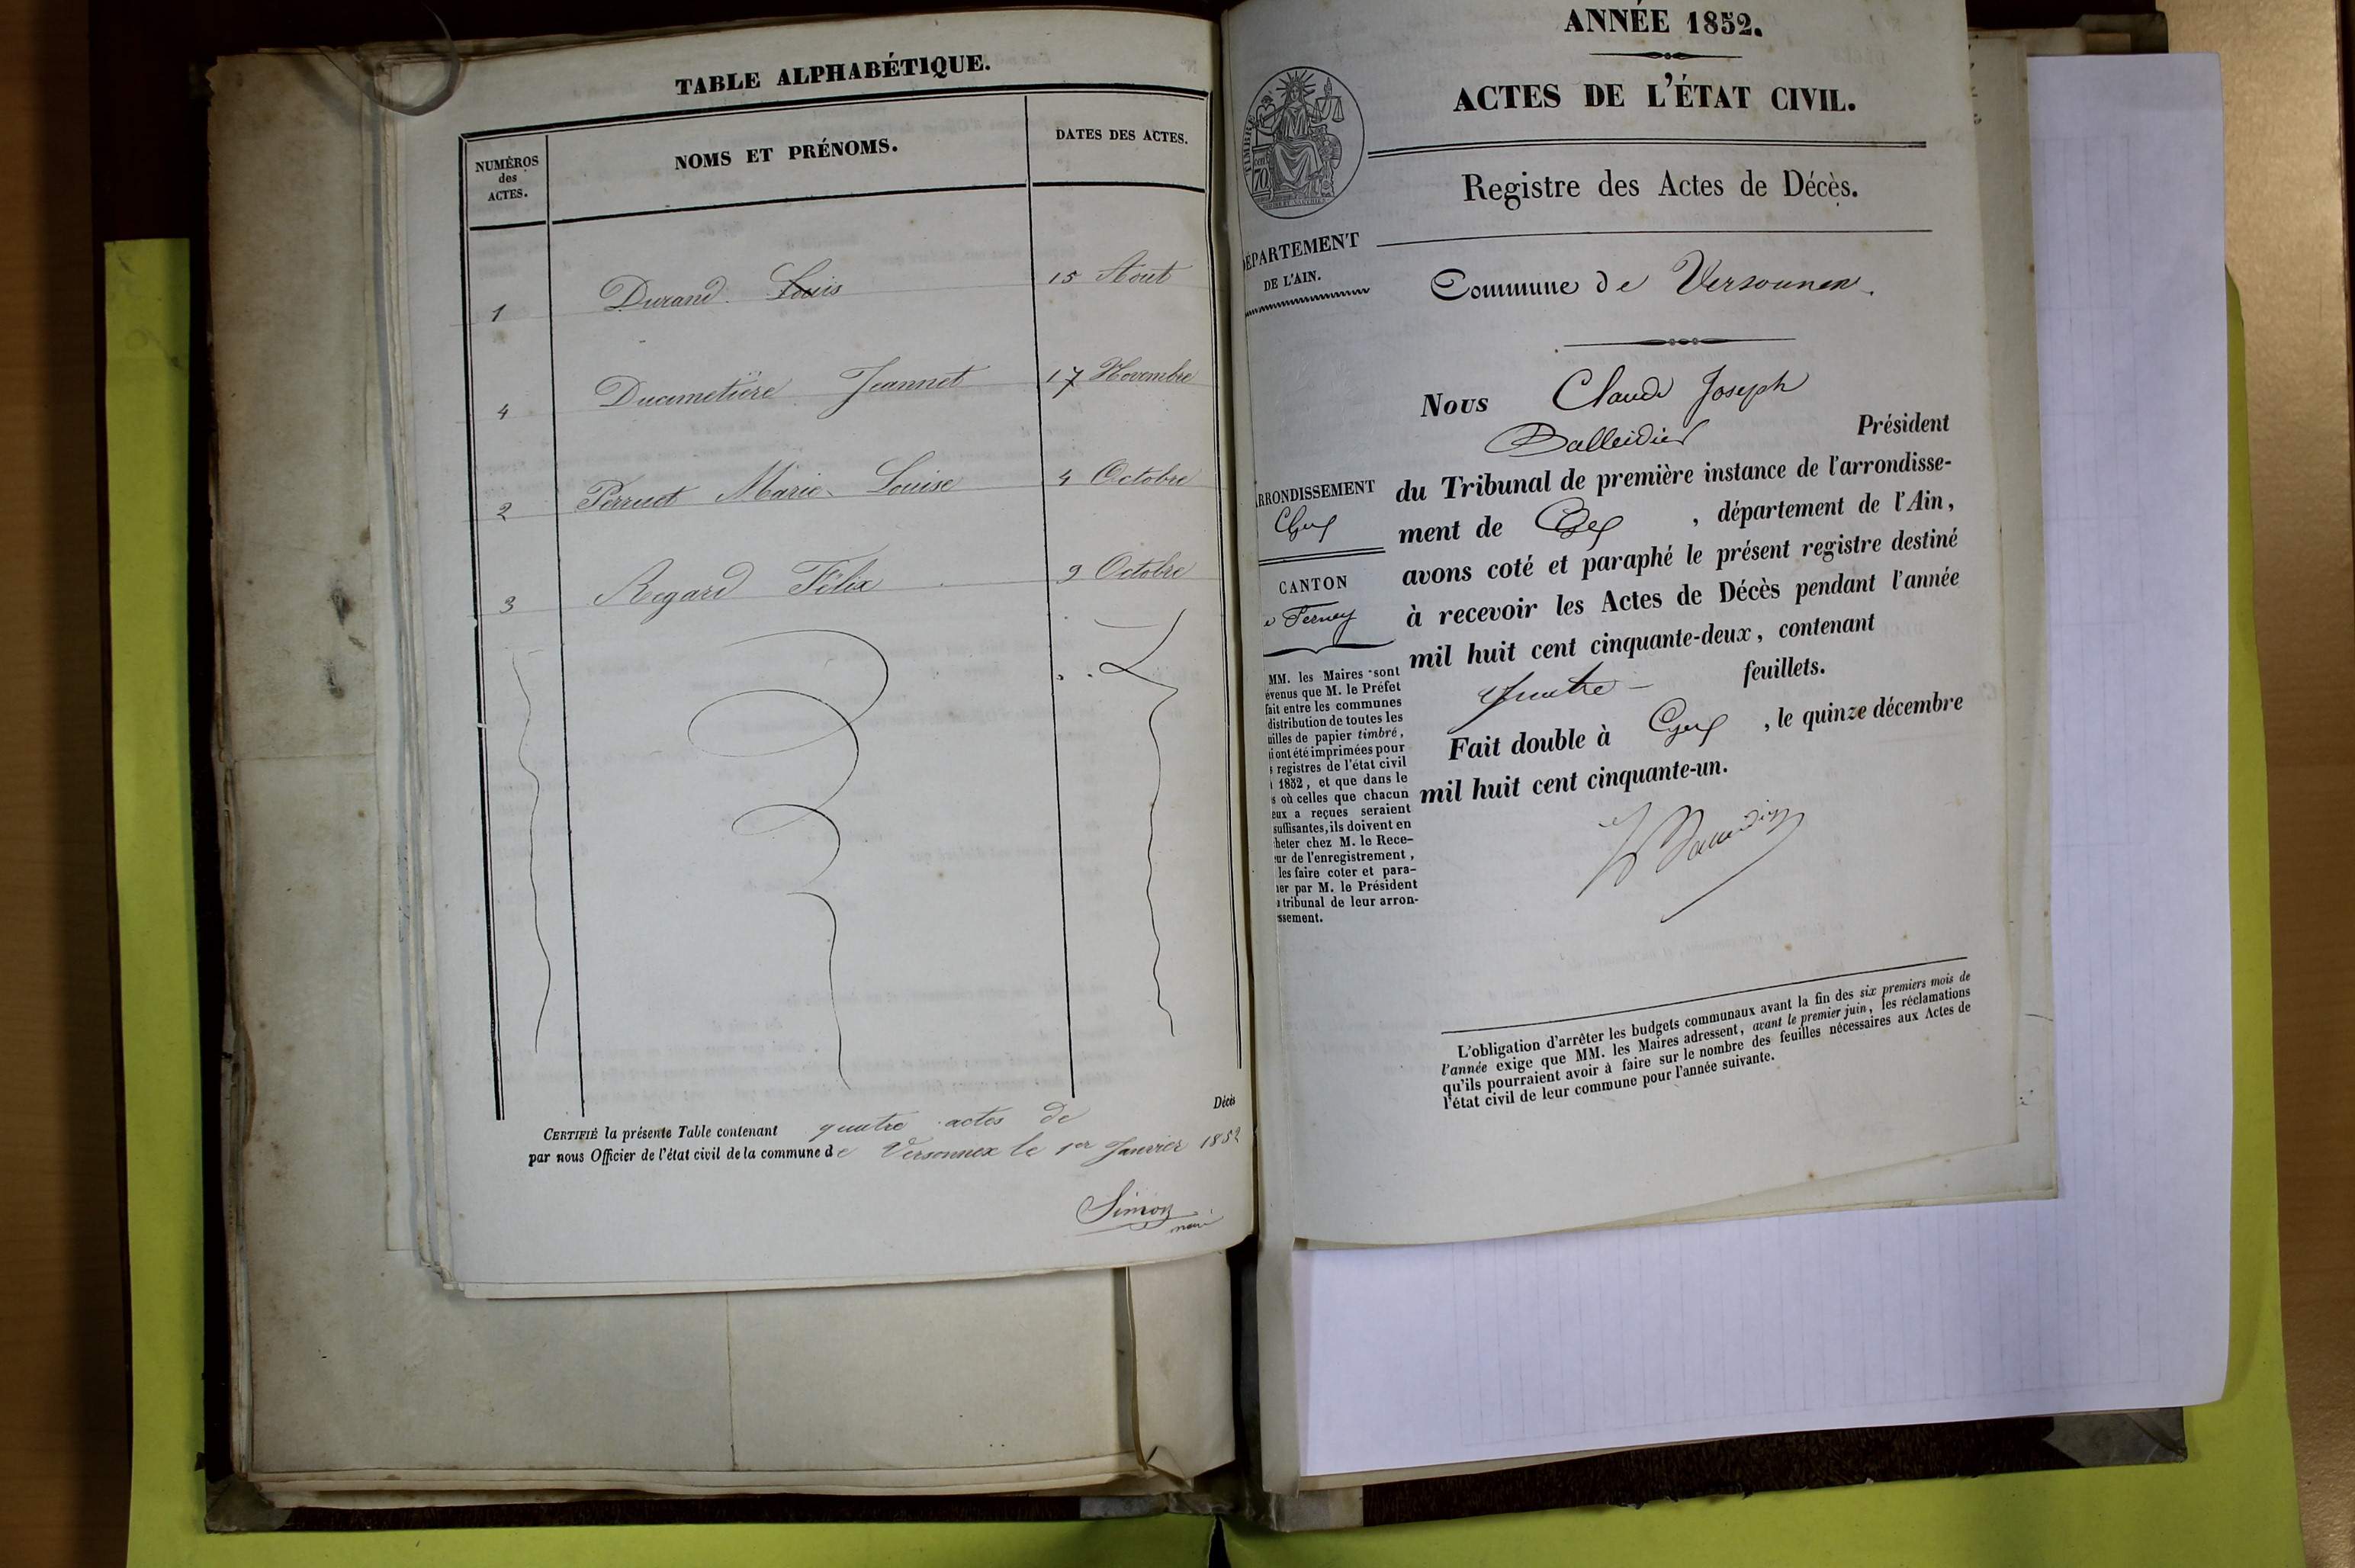 TABLE ALPHABÉTIQUE.
NUMÉROS
des
ACTES.
NOMS ET PRÉNOMS.
DATES DES ACTES.
1 Durand Louis 15 Aout
4 Ducimetière Jeannet 17 Novembre
2 Perruet Marie Louise 4 Octobre
3 Regard Félix 9 Octobre
Décès
CERTIFIÉ la présente Table contenant quatre actes de
par nous Officier de l'état civil de la commune de Versonnex le 1er Janvier 1852
Simon
ANNÉE 1852.
ACTES DE L'ÉTAT CIVIL.
TIMBRE
70
Registre des Actes de Décès.
ÉPARTEMENT
DE L'AIN.
Commune de Versonnex.
Nous Claude Joseph
Balleidier Président
du Tribunal de première instance de l'arrondisse-
ment de Gex, département de l'Ain,
avons coté et paraphé le présent registre destiné
à recevoir les Actes de Décès pendant l'année
mil huit cent cinquante-deux, contenant
quatre feuillets.
Fait double à Gex, le quinze décembre
mil huit cent cinquante-un.
RRONDISSEMENT
Gex
CANTON
e Ferney
MM. les Maires sont
évenus que M. le Préfet
fait entre les communes
distribution de toutes les
uilles de papier timbré,
i ont été imprimées pour
s registres de l'état civil
1852, et que dans le
s où celles que chacun
eux a reçues seraient
suffisantes, ils doivent en
heter chez M. le Rece-
ur de l'enregistrement,
les faire coter et para-
er par M. le Président
tribunal de leur arron-
ssement.
L'obligation d'arrêter les budgets communaux avant la fin des six premiers mois de
l'année exige que MM. les Maires adressent, avant le premier juin, les réclamations
qu'ils pourraient avoir à faire sur le nombre des feuilles nécessaires aux Actes de
l'état civil de leur commune pour l'année suivante.